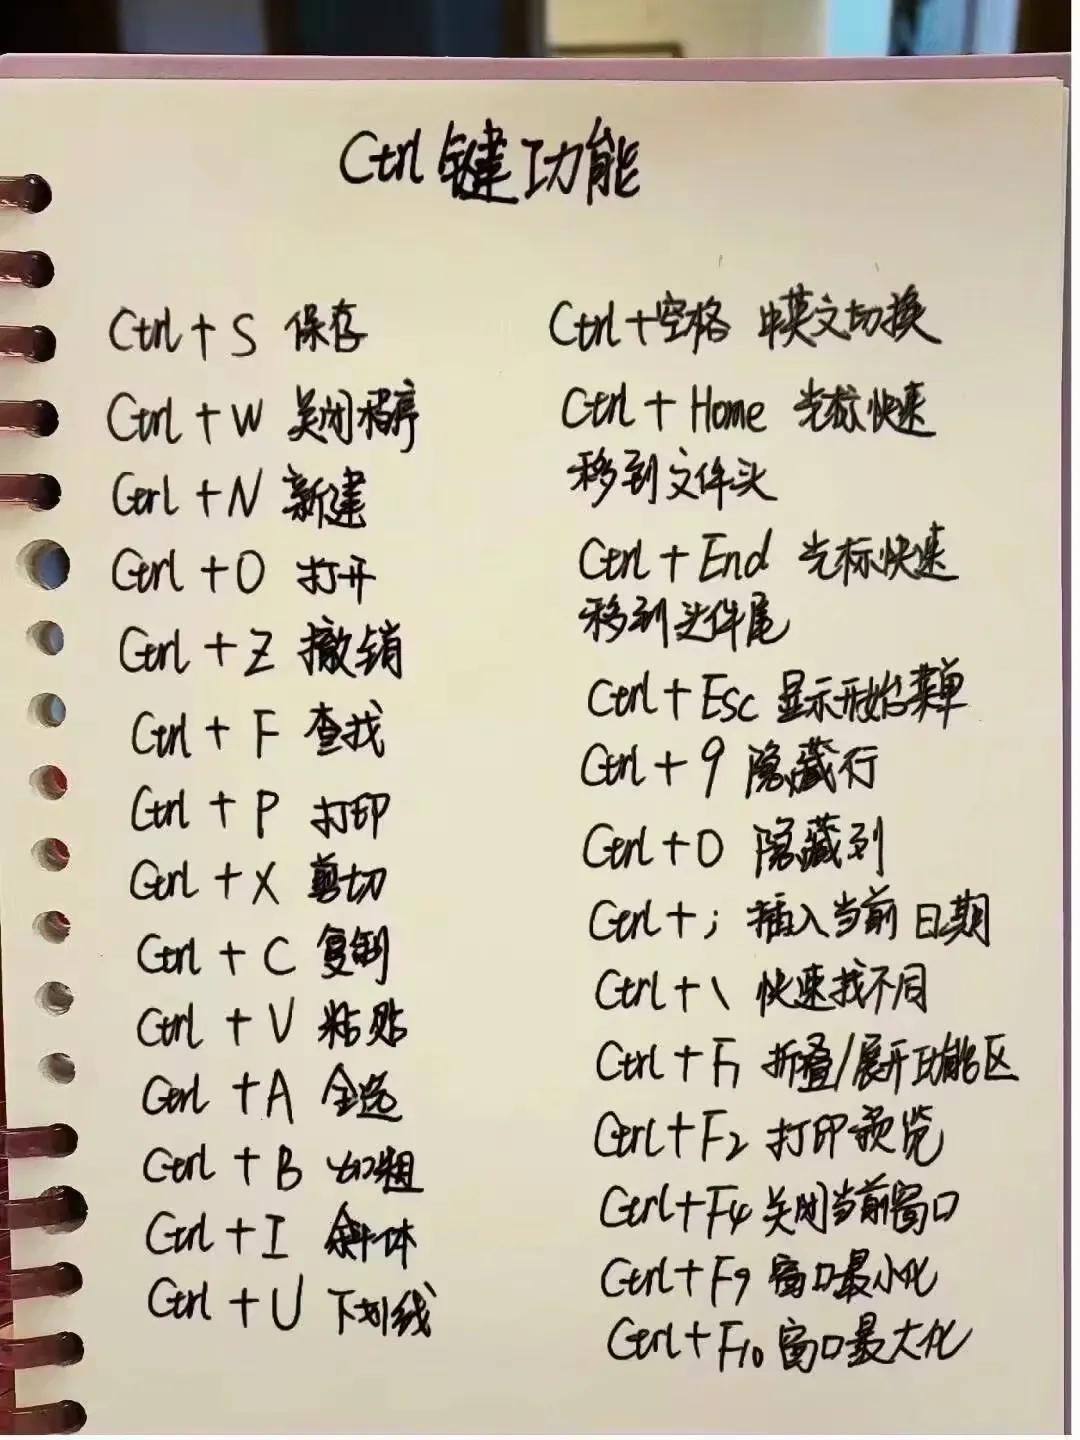 Ctrl键功能
Ctrl+S 保存
Ctrl+W 关闭程序
Ctrl+N 新建
Ctrl+O 打开
Ctrl+Z 撤销
Ctrl+F 查找
Ctrl+P 打印
Ctrl+X 剪切
Ctrl+C 复制
Ctrl+V 粘贴
Ctrl+A 全选
Ctrl+B 加粗
Ctrl+I 斜体
Ctrl+U 下划线
Ctrl+空格 中英文切换
Ctrl+Home 光标快速
移到文件头
Ctrl+End 光标快速
移到头件尾
Ctrl+Esc 显示开始菜单
Ctrl+9 隐藏行
Ctrl+0 隐藏列
Ctrl+; 插入当前日期
Ctrl+\ 快速找不同
Ctrl+F1 折叠/展开功能区
Ctrl+F2 打印预览
Ctrl+F4 关闭当前窗口
Ctrl+F9 窗口最小化
Ctrl+F10 窗口最大化